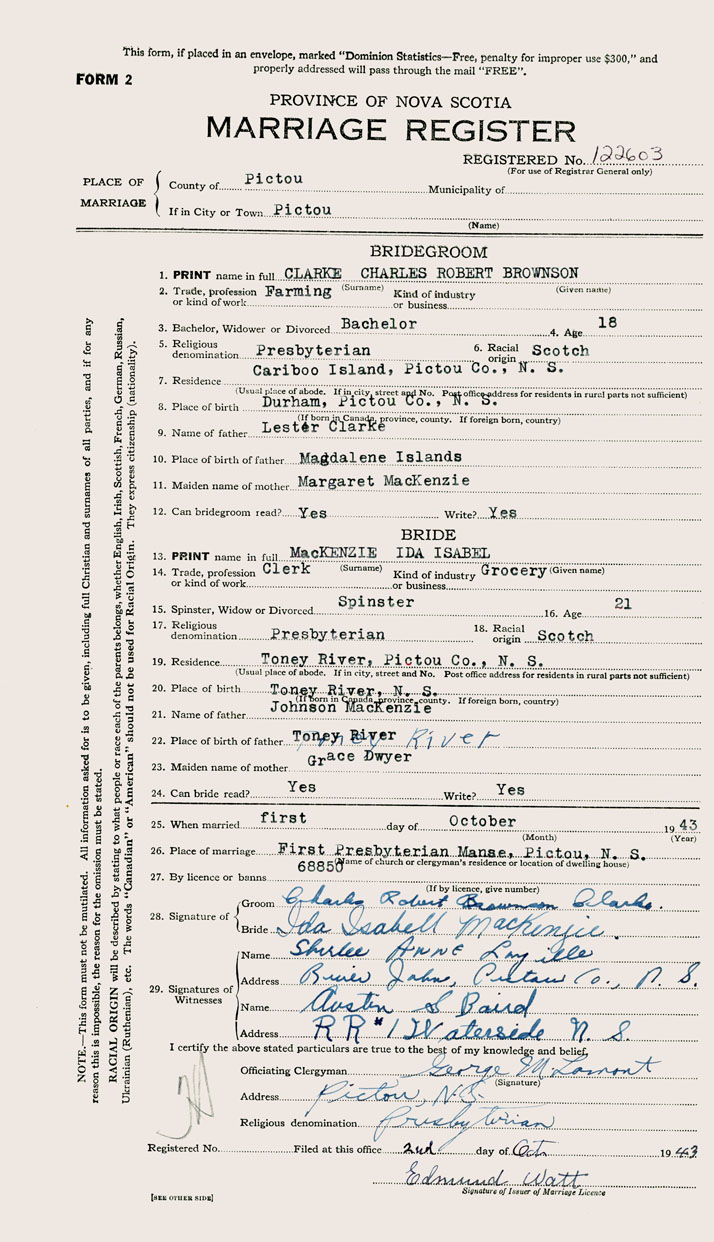 This form, if placed in an envelope, marked "Dominion Statistics—Free, penalty for improper use $300," and
properly addressed will pass through the mail "FREE".
FORM 2
PROVINCE OF NOVA SCOTIA
MARRIAGE REGISTER
REGISTERED No. 122603
(For use of Registrar General only)
PLACE OF MARRIAGE
County of Pictou Municipality of
If in City or Town Pictou
(Name)
BRIDEGROOM
1. PRINT name in full CLARKE CHARLES ROBERT BROWNSON
(Surname) (Given name)
2. Trade, profession or kind of work Farming Kind of industry or business
3. Bachelor, Widower or Divorced Bachelor 4. Age 18
5. Religious denomination Presbyterian 6. Racial origin Scotch
7. Residence Cariboo Island, Pictou Co., N. S.
(Usual place of abode. If in city, street and No. Post office address for residents in rural parts not sufficient)
8. Place of birth Durham, Pictou Co., N. S.
(If born in Canada, province, county. If foreign born, country)
9. Name of father Lester Clarke
10. Place of birth of father Magdalene Islands
11. Maiden name of mother Margaret MacKenzie
12. Can bridegroom read? Yes Write? Yes
BRIDE
13. PRINT name in full MacKENZIE IDA ISABEL
(Surname) (Given name)
14. Trade, profession or kind of work Clerk Kind of industry or business Grocery
15. Spinster, Widow or Divorced Spinster 16. Age 21
17. Religious denomination Presbyterian 18. Racial origin Scotch
19. Residence Toney River, Pictou Co., N. S.
(Usual place of abode. If in city, street and No. Post office address for residents in rural parts not sufficient)
20. Place of birth Toney River, N. S.
(If born in Canada, province, county. If foreign born, country)
21. Name of father Johnson MacKenzie
22. Place of birth of father Toney River Toney River
23. Maiden name of mother Grace Dwyer
24. Can bride read? Yes Write? Yes
25. When married first day of October 1943
(Month) (Year)
26. Place of marriage First Presbyterian Manse, Pictou, N. S.
(Name of church or clergyman's residence or location of dwelling house)
27. By licence or banns 68850
(If by licence, give number)
28. Signature of
Groom Charles Robert Brownson Clarke.
Bride Ida Isabell MacKenzie.
29. Signatures of Witnesses
Name Shirlee Anne
Address River John, Pictou Co., N. S.
Name Austen S Baird
Address RR #1 Waterside N. S.
I certify the above stated particulars are true to the best of my knowledge and belief,
Officiating Clergyman George M Lamont
(Signature)
Address Pictou, N.S.
Religious denomination Presbyterian
Registered No. Filed at this office 2nd day of Oct 1943
Edmund Watt
Signature of Issuer of Marriage Licence
[SEE OTHER SIDE]
NOTE.—This form must not be mutilated. All information asked for is to be given, including full Christian and surnames of all parties, and if for any
reason this is impossible, the reason for the omission must be stated.
RACIAL ORIGIN will be described by stating to what people or race each of the parents belongs, whether English, Irish, Scottish, French, German, Russian,
Ukrainian (Ruthenian), etc. The words "Canadian" or "American" should not be used for Racial Origin. They express citizenship (nationality).